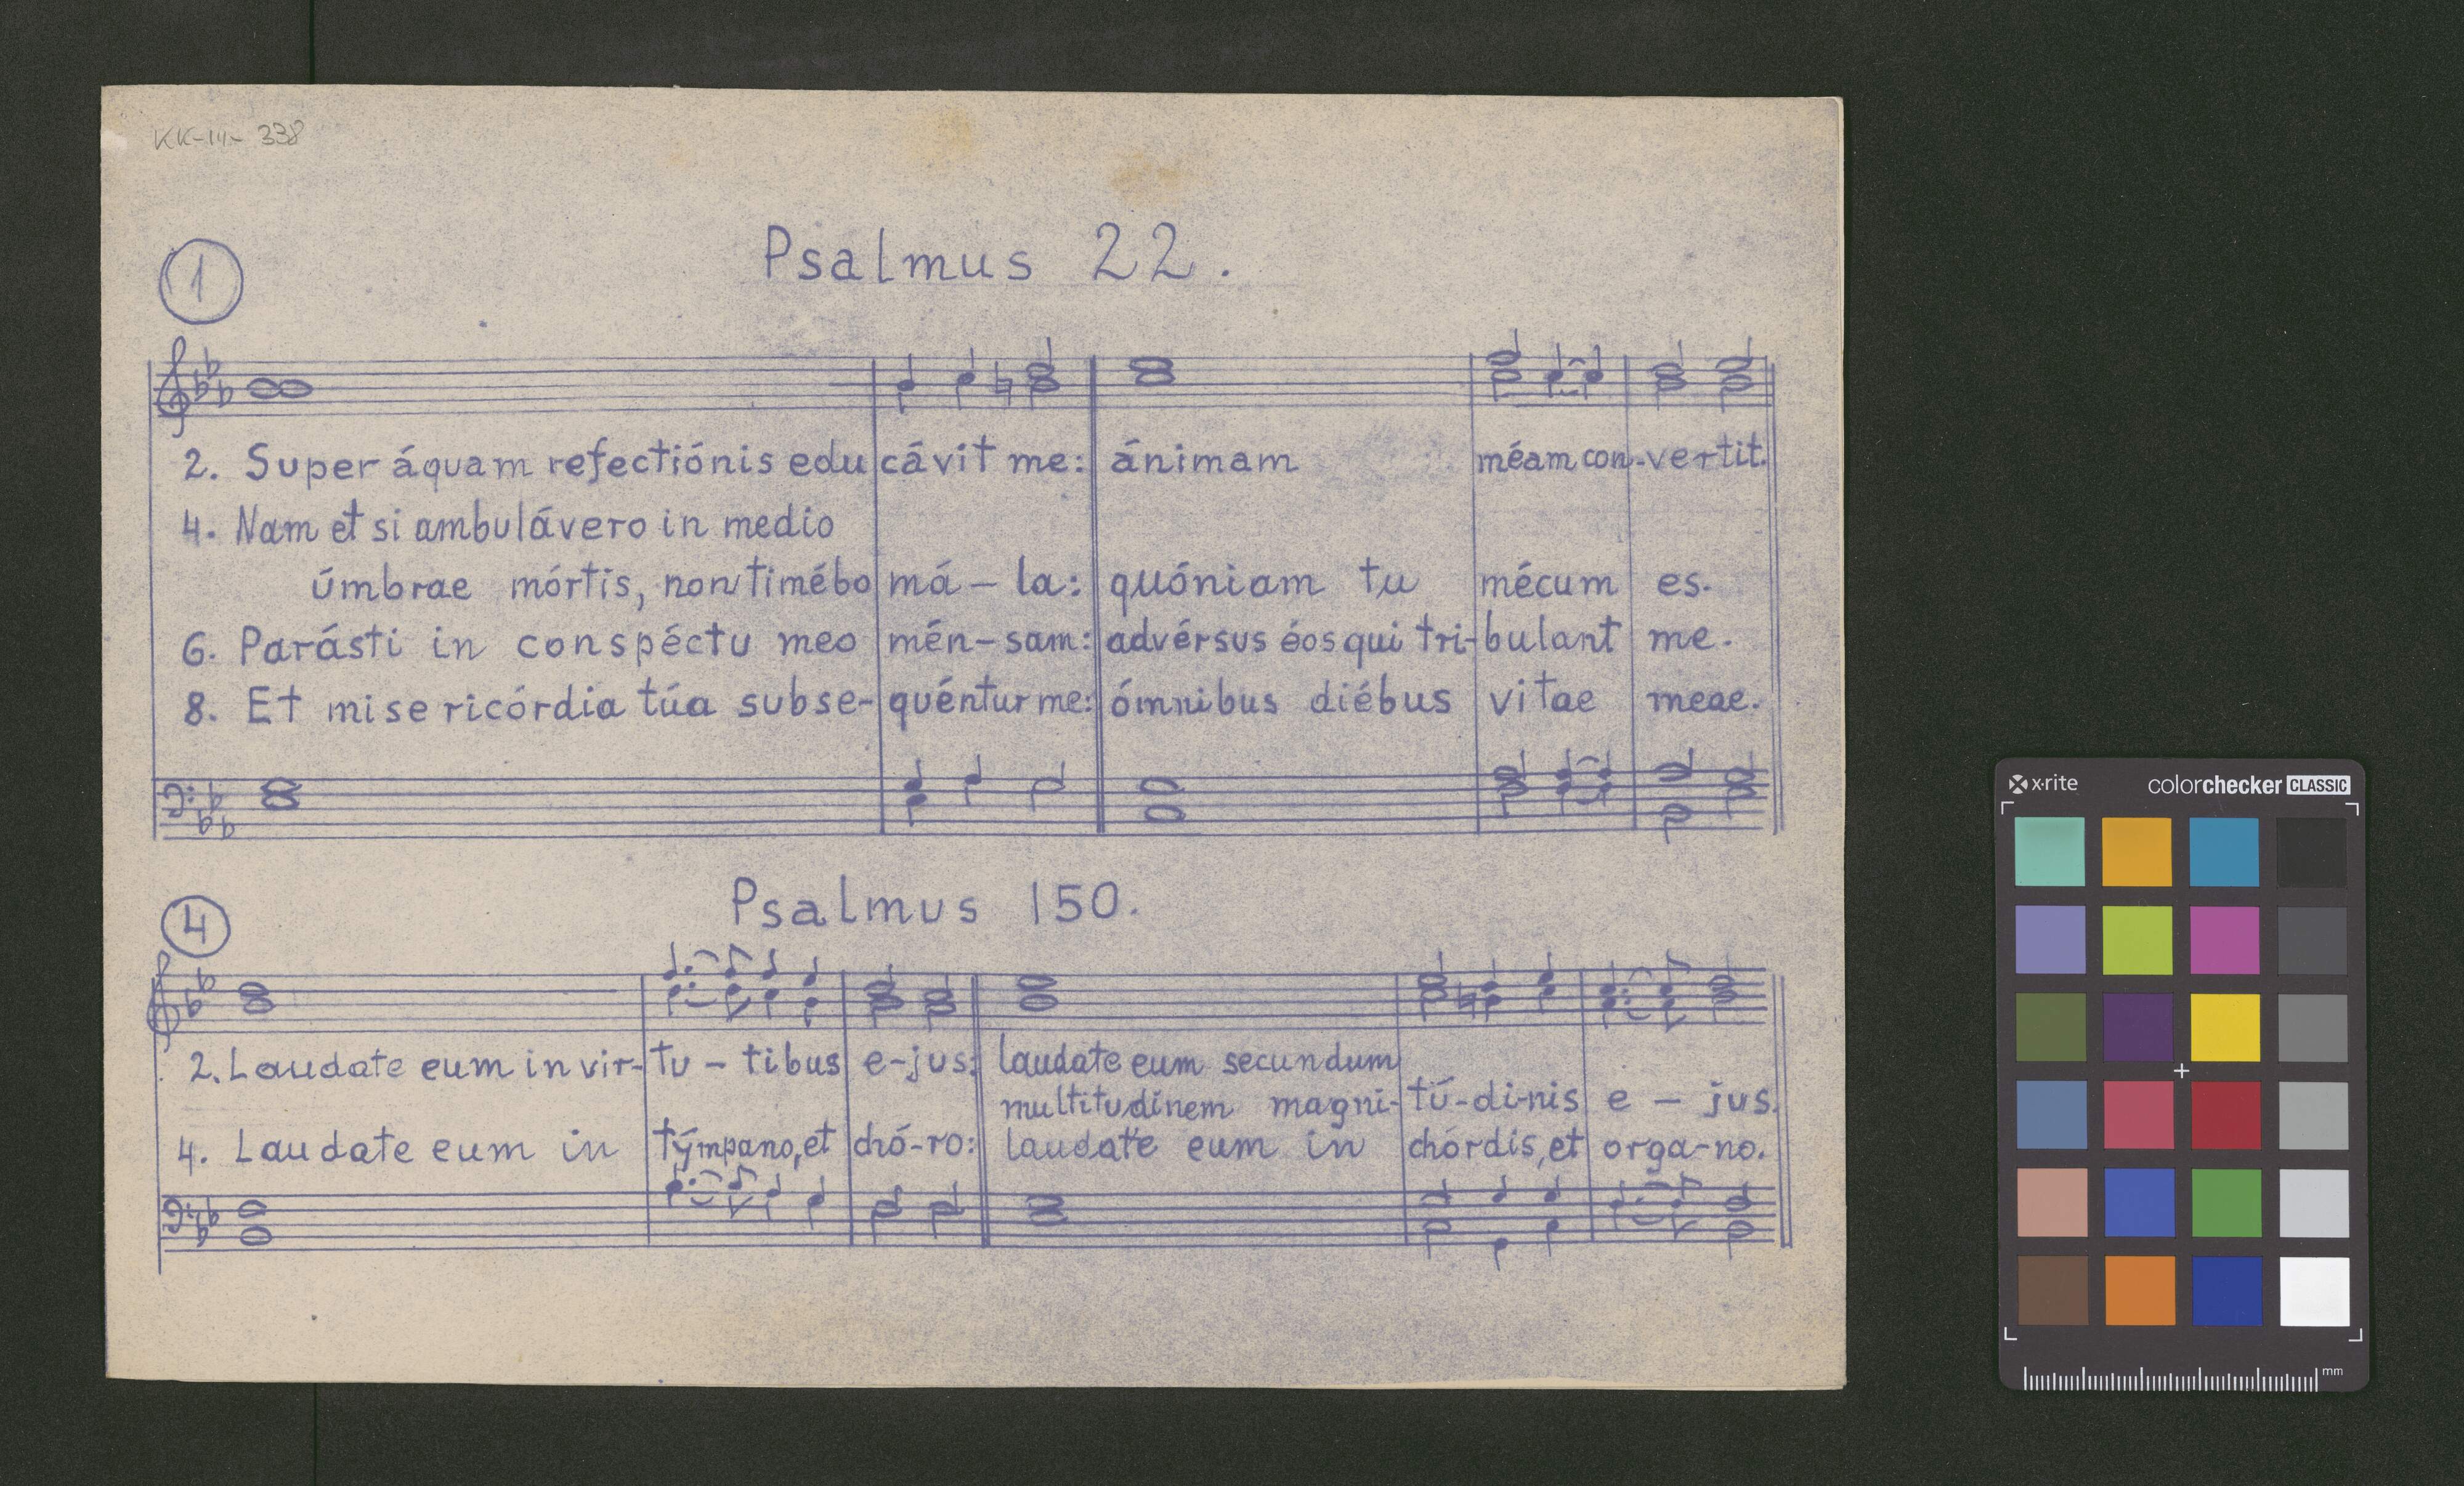 KK-III- 338
1
Psalmus 22.
2. Super áquam refectiónis edu cávit me: ánimam méam con-vertit.
4. Nam et si ambulávero in medio
úmbrae mórtis, non timébo má-la: quóniam tu mécum es.
6. Parásti in conspéctu meo mén-sam: advérsus éos qui tri-bulant me.
8. Et misericórdia túa subse-quéntur me: ómnibus diébus vitae meae.
4
Psalmus 150.
2. Laudate eum in vir-tu-tibus e-jus: laudate eum secundum
multitudinem magni-tú-di-nis e-jus.
4. Laudate eum in týmpano, et chó-ro: laudate eum in chórdis, et orga-no.
x-rite colorchecker CLASSIC
mm